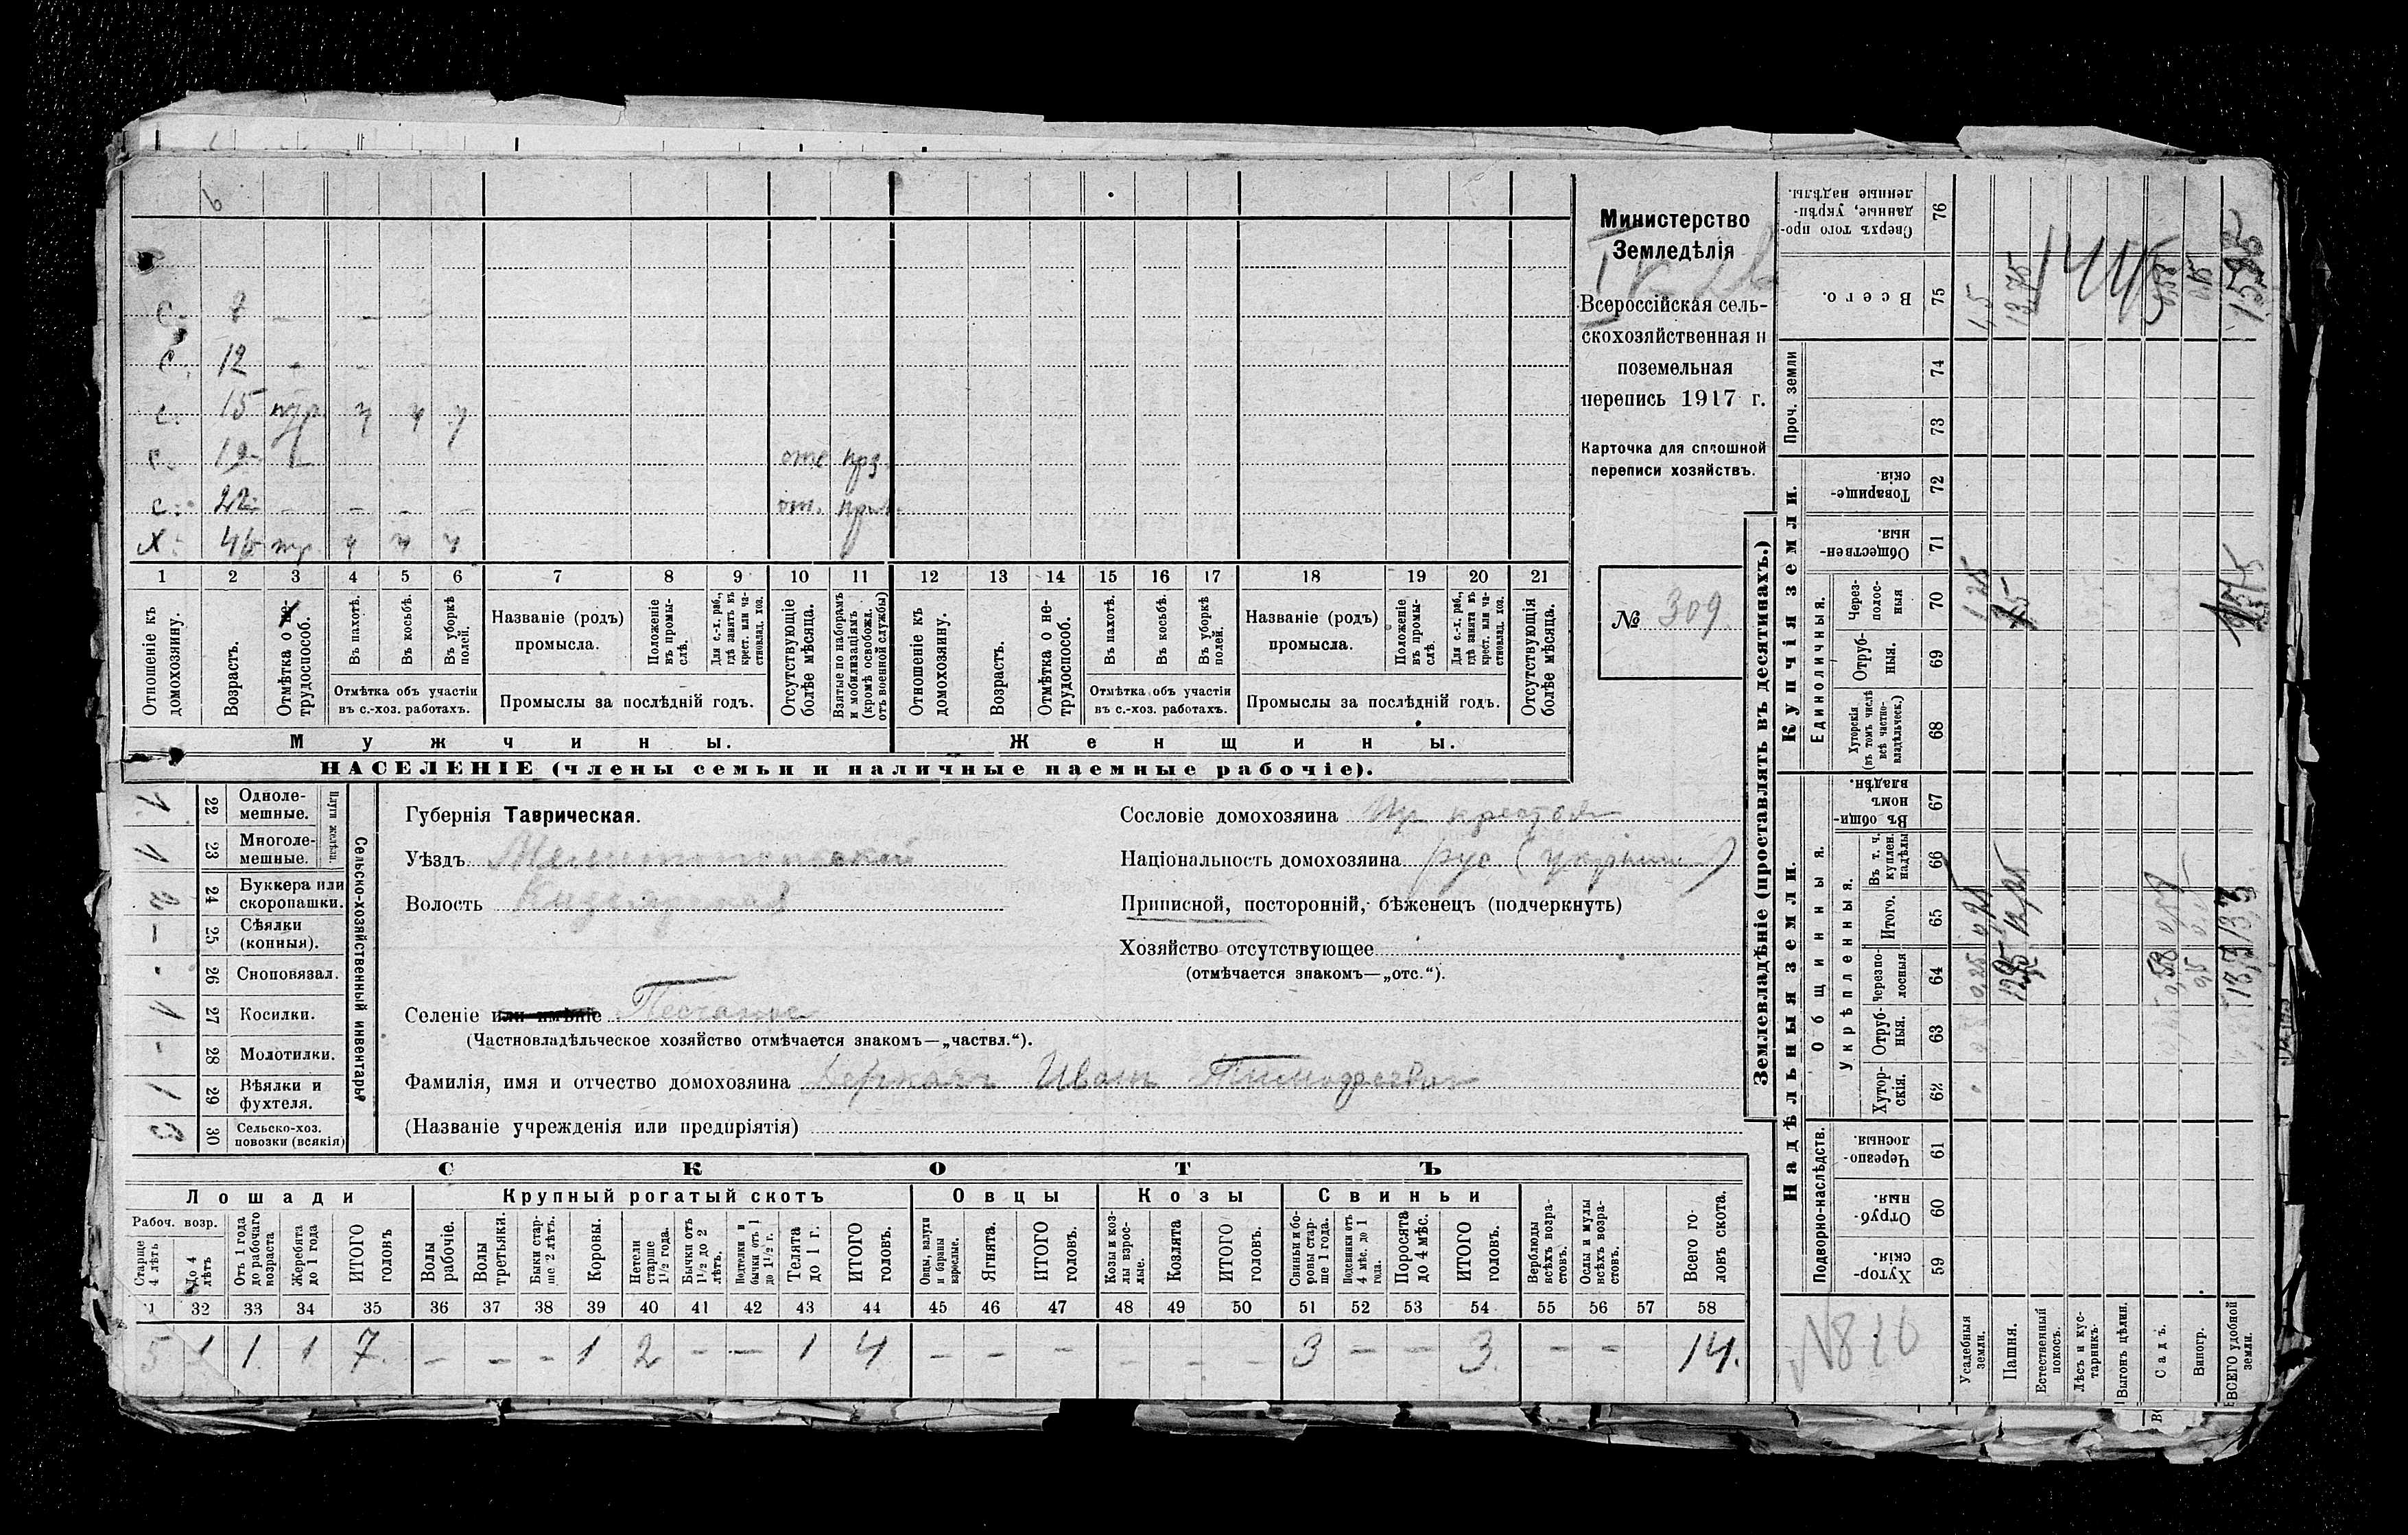 6
Министерство
Земледѣлія
Всероссійская сель-
скохозяйственная и
поземельная
перепись 1917 г.
Карточка для сплошной
переписи хозяйствъ.
№ 309
С. 7 - -
С. 12 - - -
С. 15 ч ч ч
С. 19
С. 22 - - - -
Х. 45 ч ч ч
1 2 3 4 5 6 7 8 9 10 11 12 13 14 15 16 17 18 19 20 21
Отношеніе къ домохозяину.
Возрастъ.
Отмѣтка о не-трудоспособ.
Въ пахотѣ.
Въ косьбѣ.
Въ уборкѣ полей.
Отмѣтка объ участіи въ с.-хоз. работахъ.
Названіе (родъ) промысла.
Положеніе въ промы-слѣ.
Для с.-х. раб., гдѣ занятъ въ крест. или ча-стновлад. хоз.
Промыслы за послѣдній годъ.
Отсутствующіе болѣе мѣсяца.
Взятые по наборамъ и мобилизаціямъ (кромѣ освобожд. отъ военной службы)
Отношеніе къ домохозяину.
Возрастъ.
Отмѣтка о не-трудоспособ.
Въ пахотѣ.
Въ косьбѣ.
Въ уборкѣ полей.
Отмѣтка объ участіи въ с.-хоз. работахъ.
Названіе (родъ) промысла.
Положеніе въ промы-слѣ.
Для с.-х. раб., гдѣ занята въ крест. или ча-стновлад. хоз.
Промыслы за послѣдній годъ.
Отсутствующія болѣе мѣсяца.
Мужчины. Женщины.
НАСЕЛЕНІЕ (члены семьи и наличные наемные рабочіе).
1 22 Одноле-мешные.
1 23 Многоле-мешные.
Плуги желѣзн.
2 24 Буккера или скоропашки.
- 25 Сѣялки (конныя).
- 26 Сноповязал.
1 27 Косилки.
- 28 Молотилки.
1 29 Вѣялки и фухтеля.
3 30 Сельско-хоз. повозки (всякія)
Сельско-хозяйственный инвентарь
Губернія Таврическая.
Уѣздъ Мелитопольский
Волость Кизеярская
Селеніе или имѣніе Песчаное
(Частновладѣльческое хозяйство отмѣчается знакомъ—„частвл.“).
Фамилія, имя и отчество домохозяина Деркачъ Иванъ Тимофеевич
(Названіе учрежденія или предпріятія)
Сословіе домохозяина
Національность домохозяина рус (украин)
Приписной, посторонній, бѣженецъ (подчеркнуть)
Хозяйство отсутствующее
(отмѣчается знакомъ—„отс.“).
СКОТЪ
Лошади Крупный рогатый скотъ Овцы Козы Свиньи
Рабоч. возр.
Старше 4 лѣтъ
До 4 лѣтъ
Отъ 1 года до рабочаго возраста
Жеребята до 1 года
ИТОГО головъ
Волы рабочіе.
Волы третьяки.
Быки стар-ше 2 лѣтъ.
Коровы.
Нетели старше 1 1/2 года.
Бычки отъ 1 1/2 до 2 лѣтъ.
Подтелки и бычки отъ 1 до 1 1/2 г.
Телята до 1 г.
ИТОГО головъ.
Овцы, валухи и бараны взрослые.
Ягнята.
ИТОГО головъ.
Козы и коз-лы взрос-лые.
Козлята
ИТОГО головъ.
Свиньи и бо-ровы стар-ше 1 года.
Подсвинки отъ 4 мѣс. до 1 года.
Поросята до 4 мѣс.
ИТОГО головъ.
Верблюды всѣхъ возра-стовъ.
Ослы и мулы всѣхъ возра-стовъ.
Всего го-ловъ скота.
31 32 33 34 35 36 37 38 39 40 41 42 43 44 45 46 47 48 49 50 51 52 53 54 55 56 57 58
5 1 1 1 7 - - - 1 2 - - 1 4 - - - - - - 3 - - 3 - - 14.
Землевладѣніе (проставлять въ десятинахъ.)
Надѣльныя земли. Купчія земли. Проч. земли
Подворно-наслѣдств.
Общинныя.
Укрѣпленныя.
Единоличныя.
59 Хутор-скія.
60 Отруб-ныя.
61 Черезпо-лосныя.
62 Хутор-скія.
63 Отруб-ныя.
64 Черезпо-лосныя
65 Итого.
66 Въ т. ч. куплен. надѣлы
67 Въ общи-номъ владѣн.
68 Хуторскія (въ томъ числѣ всѣ частно-владѣльческ.)
69 Отруб-ныя.
70 Через-полос-ныя
71 Обществен-ныя
72 Товарище-скія.
73
74
75 Всего.
76 Сверхъ того про-данные, укрѣп-ленные надѣлы.
Усадебныя земли.
Пашня.
Естественный покосъ.
Лѣсъ и кус-тарникъ.
Выгонъ цѣлин.
Садъ.
Виногр.
ВСЕГО удобной земли.
№810